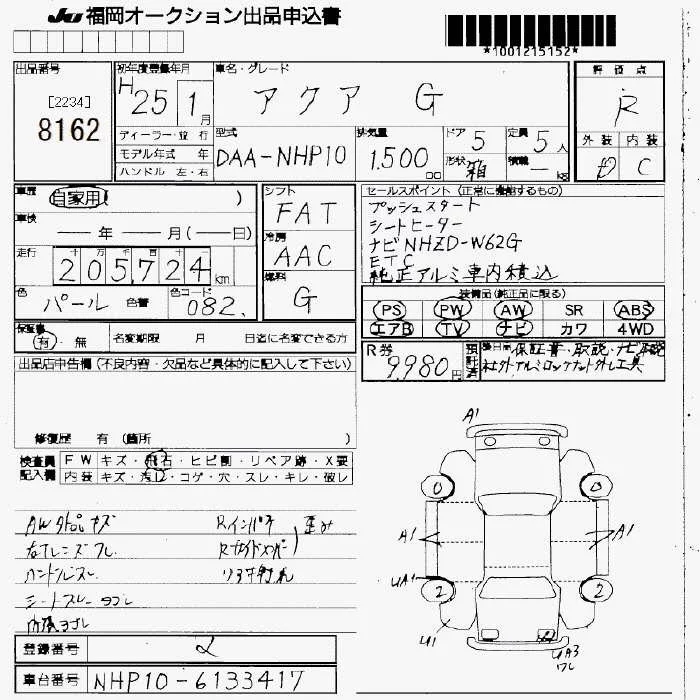 JU 福岡オークション出品申込書
*1001215152*
出品番号
[2234]
8162
初年度登録年月
H 25 1 月
車名・グレード
アクア G
評価点
R
ディーラー・並行
モデル年式 年
ハンドル 左・右
型式
DAA-NHP10
排気量
1,500 cc
ドア 5
形状 箱
定員 5 人
積載 — kg
外装 内装
C
車歴 自家用( )
車検 — 年 — 月(— 日)
走行 十万 千 百 十
205,724 km
色 パール 色替
色コード 082
シフト
FAT
冷房
AAC
燃料
G
セールスポイント (正常に機能するもの)
プッシュスタート
シートヒーター
ナビ NHZD-W62G
ETC
純正アルミ車内積込
装備品(純正品に限る)
PS PW AW SR ABS
エアB TV ナビ カワ 4WD
保証書 有・無
名変期限 月 日迄に名変できる方
R券 9,980 円
預託済
後日品 保証書・取説・ナビ取説
社外アルミロックナット外し工具
出品店申告欄 (不良内容・欠品など具体的に記入して下さい)
修復歴 有 (箇所 )
検査員記入欄
FW キズ・飛石・ヒビ割・リペア跡・X要
内装 キズ・浅ヒ・コゲ・穴・スレ・キレ・破レ
AW キズ
Rインパネ 歪み
ハンドルスレ
シートスレ ヨゴレ
内張ヨゴレ
A1
0 0
A1 A1
UA1
2 2
U1
UA3
ワレ
登録番号
車台番号 NHP10-6133417